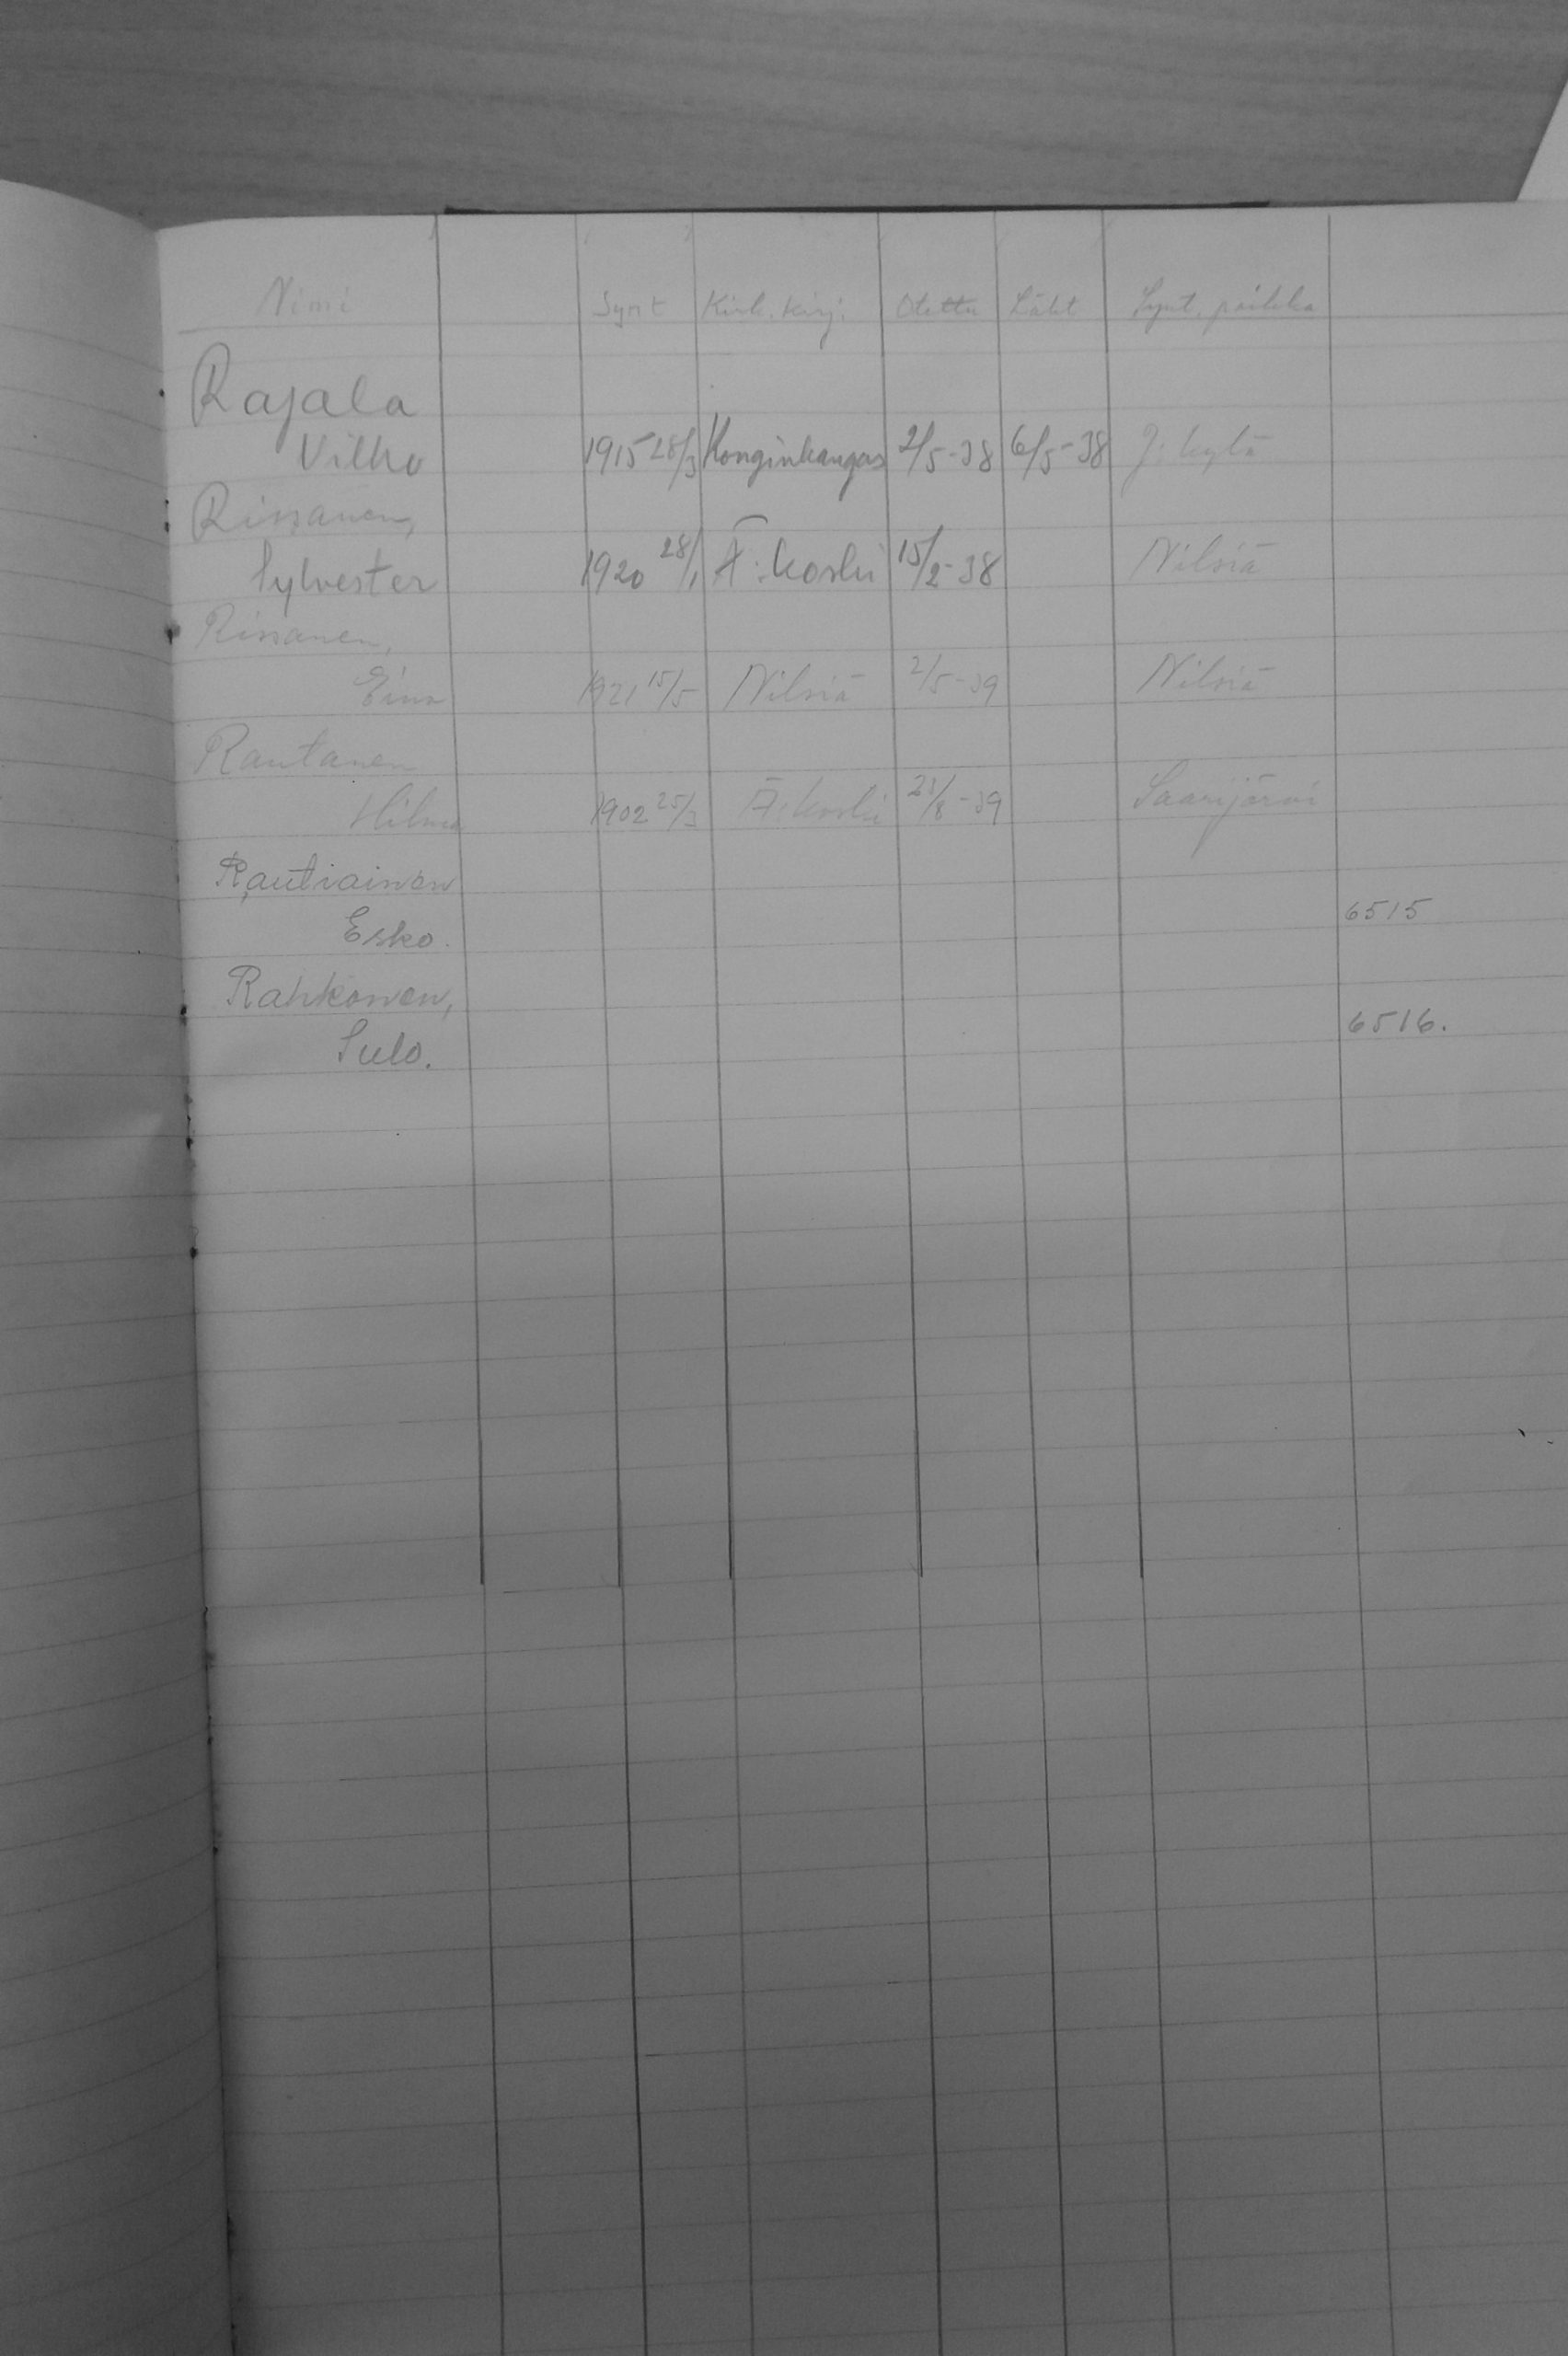 Nimi Synt Kirk. kirj. Otettu Läht Synt. paikka
Rajala
Vilho 1915 28/3 Konginkangas 2/5-38 6/5-38 J: kylä
Rissanen,
Sylvester 1920 28/1 Ä:koski 15/2-38 Nilsiä
Rissanen,
Eino 1921 15/5 Nilsiä 2/5-39 Nilsiä
Rautanen
Hilma 1902 25/3 Ä:koski 23/8-39 Saarijärvi
Rautiainen
Esko. 6515
Rahkonen,
Sulo. 6516.